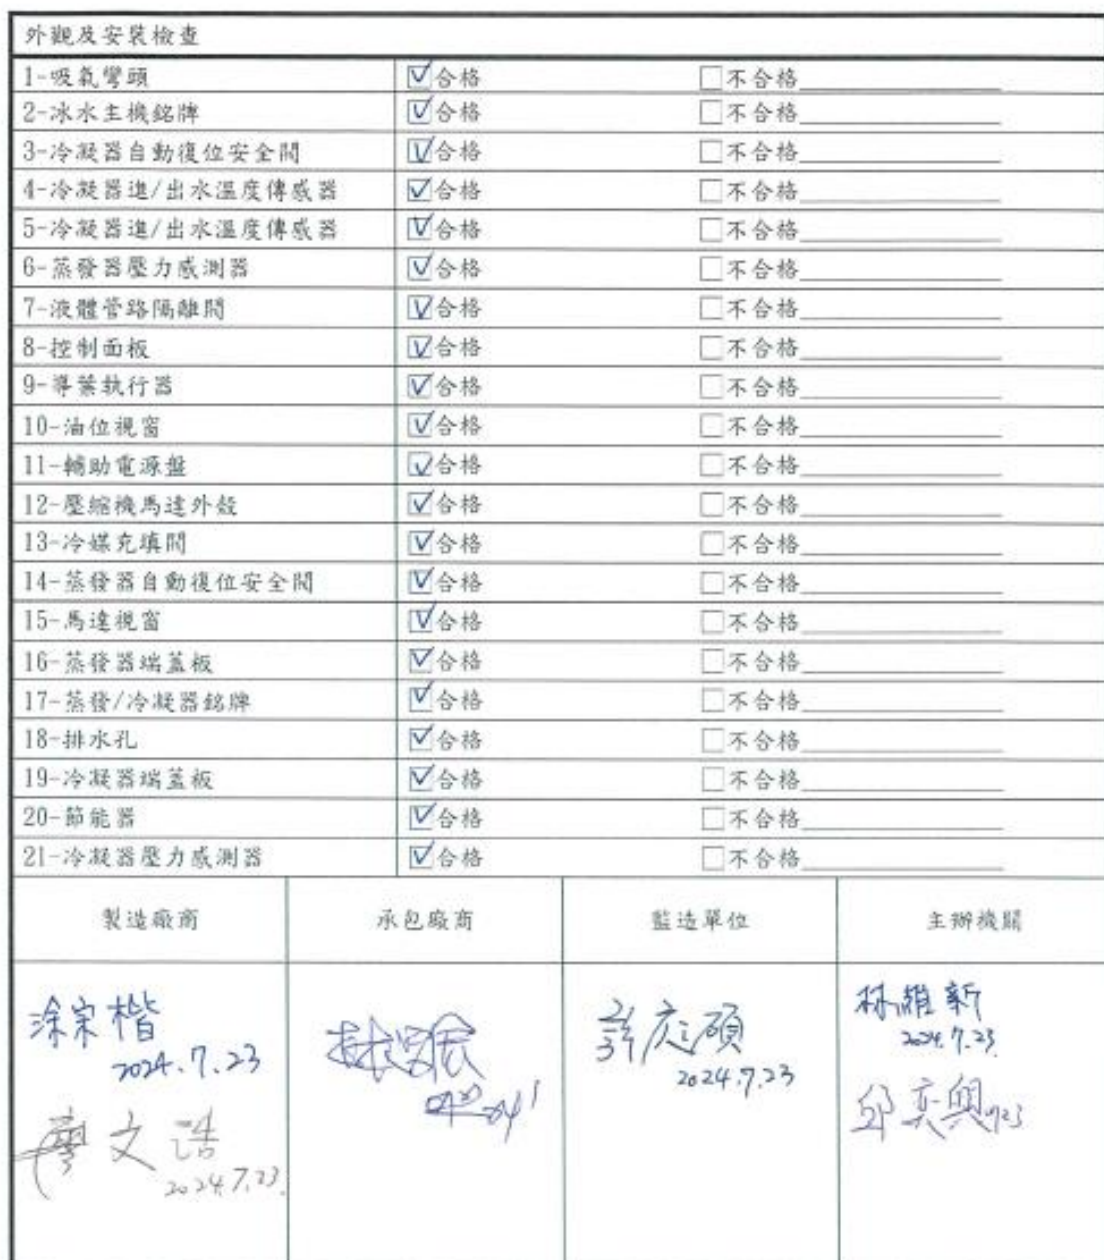 外觀及安裝檢查
1-吸氣彎頭 ☑合格 □不合格
2-冰水主機銘牌 ☑合格 □不合格
3-冷凝器自動復位安全閥 ☑合格 □不合格
4-冷凝器進/出水溫度傳感器 ☑合格 □不合格
5-冷凝器進/出水溫度傳感器 ☑合格 □不合格
6-蒸發器壓力感測器 ☑合格 □不合格
7-液體管路隔離閥 ☑合格 □不合格
8-控制面板 ☑合格 □不合格
9-導葉執行器 ☑合格 □不合格
10-油位視窗 ☑合格 □不合格
11-輔助電源盤 ☑合格 □不合格
12-壓縮機馬達外殼 ☑合格 □不合格
13-冷媒充填閥 ☑合格 □不合格
14-蒸發器自動復位安全閥 ☑合格 □不合格
15-馬達視窗 ☑合格 □不合格
16-蒸發器端蓋板 ☑合格 □不合格
17-蒸發/冷凝器銘牌 ☑合格 □不合格
18-排水孔 ☑合格 □不合格
19-冷凝器端蓋板 ☑合格 □不合格
20-節能器 ☑合格 □不合格
21-冷凝器壓力感測器 ☑合格 □不合格
製造廠商 承包廠商 監造單位 主辦機關
涂宗楷
2024.7.23
廖文
2024.7.23
碩
2024.7.23
林維新
2024.7.23
邱奕興 7/23